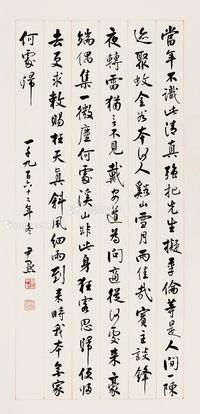 當年不識此清真強把先生擬季倫等是人間陳
迹聚蚊金谷本何人谿山雪月兩佳哉賓主談鋒
夜轉雷猶言不見戴安道為問適從何處來豪
端偶集一微塵何處溪山非此身狂客思歸便歸
去更求敕賜枉天真斜風細雨到來時我本無家
何處歸
一千九百六十二年冬 尹默